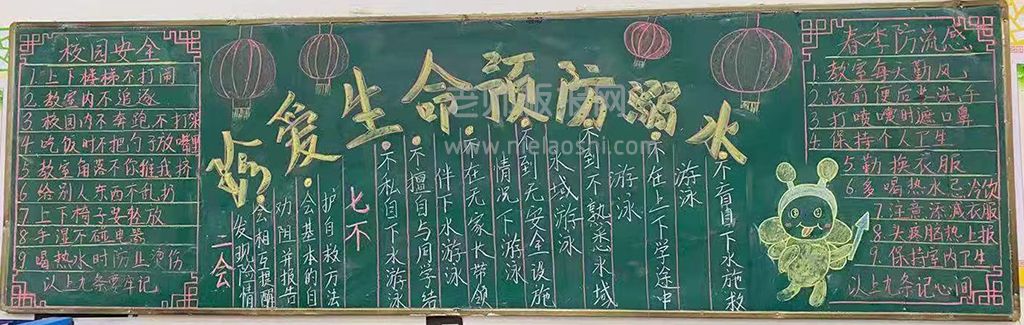 校园安全
1.上下楼梯不打闹
2.教室内不追逐
3.校园内不奔跑不打架
4.吃饭时不把勺子放嘴里
5.教室角落不你推我挤
6.给别人东西不乱扔
7.上下椅子要轻放
8.手湿不碰电器
9.喝热水时防止烫伤
以上九条要牢记
珍爱生命预防溺水
老师板报网
www.melaoshi.com
二会
·会相互提醒
劝阻并报告
发现险情
·会基本的自
护自救方法
七不
·不私自下水游泳
·不擅自与同学结
伴下水游泳
·不在无家长带领
情况下游泳
·不到无安全设施
水域游泳
·不到不熟悉水域
游泳
·不在上下学途中
游泳
·不盲目下水施救
春季防流感
1.教室每天勤风
2.饭前便后要洗手
3.打喷嚏时遮口鼻
4.保持个人卫生
5.勤换衣服
6.多喝热水忌冷饮
7.注意添减衣服
8.头疼脑热上报
9.保持室内卫生
以上九条记心间